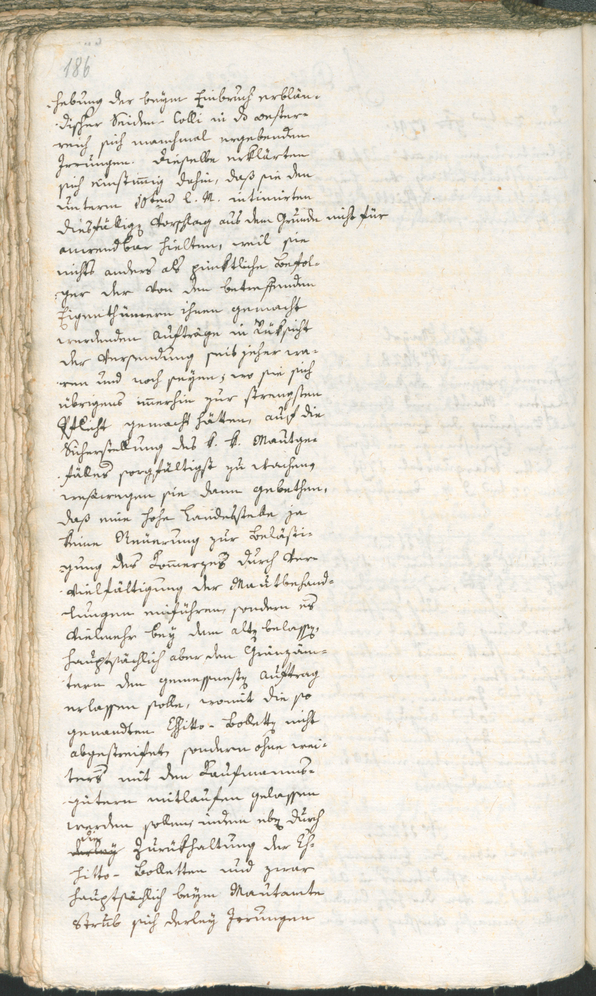 186
hebung der beym Einbruch erblän-
discher Seiden-Colli in Oester-
reich sich manchmal ergebenden
Irrungen. Dieselbe erklärten
sich einstimmig dahin, daß sie den
unterm 10ten l. M. intimirten
diesfälligen Vorschlag aus dem Grunde nicht für
anwendbar hielten, weil sie
nichts anders als pünktliche Befol-
ger der von den betreffenden
Eigenthümern ihnen gemacht
werdenden Aufträge in Rüksicht
der Versendung seit jeher wa-
ren und noch seyen; wo sie sich
übrigens immerhin zur strengsten
Pflicht gemacht hätten, auf die
Sicherstellung des k. k. Mautge-
fälles sorgfältigst zu wachen,
weßwegen sie dann gebethen,
daß eine hohe Landesstelle ja
keine Neuerung zur Belästi-
gung des Kommerzes durch Ver-
vielfältigung der Mautbehand-
lungen einführen, sondern es
vielmehr bey dem alten belassen,
hauptsächlich aber den Gränzäm-
tern den gemessensten Auftrag
erlassen solle, womit die so
genandten Essitto-Bolletten nicht
abgestreifet, sondern ohne wei-
ters mit den Kaufmanns-
gütern mitlaufen gelassen
werden sollen; indem eben durch
die
derley Zurükhaltung der Es-
sitto-Bolletten und zwar
hauptsächlich beym Mautamte
Strub sich derley Irrungen